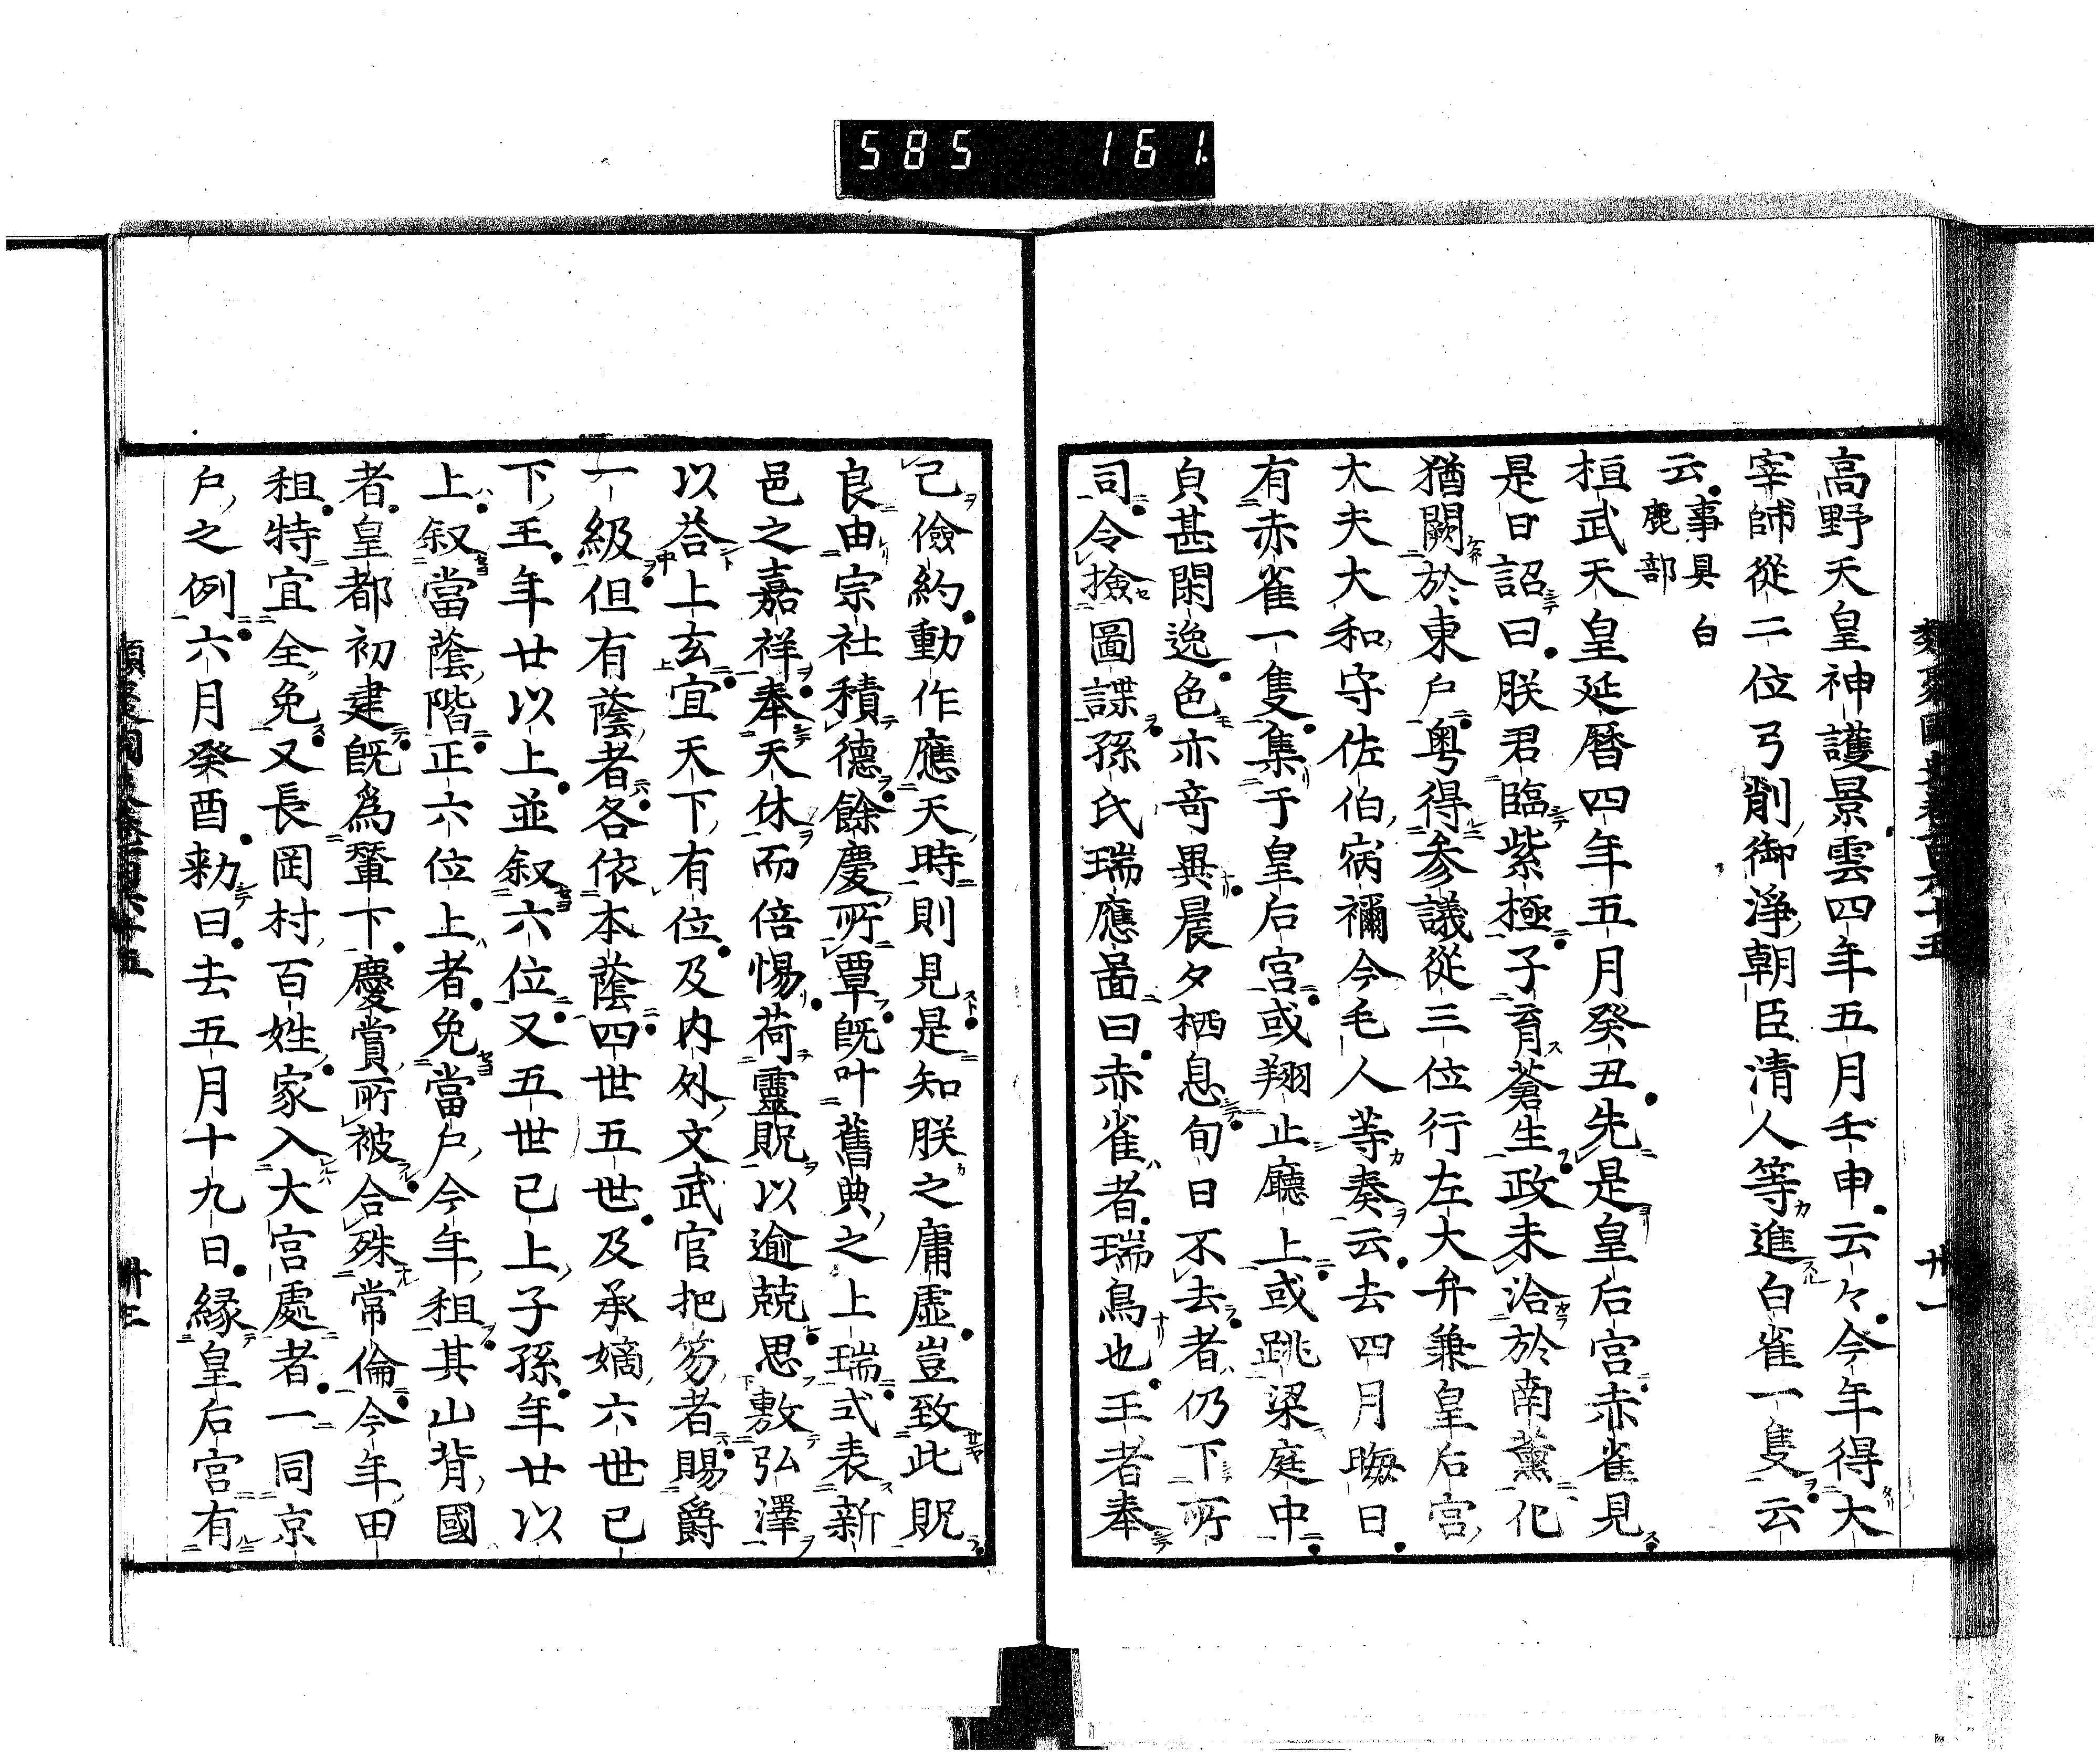 585 161
高野天皇神護景雲四年五月壬申云々今年得大
宰師從二位弓削御淨朝臣清人等進白雀一隻云
云事具白鹿部
桓武天皇延曆四年五月癸丑先是皇后宮赤雀見
是日詔曰朕君臨紫極子育蒼生政未洽於南薰化
猶闕於東戶粤得參議從三位行左大弁兼皇后宮
大夫大和守佐伯宿禰今毛人等奏云去四月晦日
有赤雀一隻集于皇后宮或翔止廳上或跳梁庭中
貞甚閑逸色亦奇異晨夕栖息旬日不去者仍下所
司令撿圖諜孫氏瑞應圖曰赤雀者瑞鳥也王者奉
己儉約動作應天時則見是知朕之庸虛豈致此貺
良由宗社積德餘慶所覃既叶舊典之上瑞式表新
邑之嘉祥奉天休而倍惕荷靈貺以逾兢思敷弘澤
以荅上玄宜天下有位及內外文武官把笏者賜爵
一級但有蔭者各依本蔭四世五世及承嫡六世已
下王年廿以上並叙六位又五世已上子孫年廿以
上叙當蔭階正六位上者免當戶今年租其山背國
者皇都初建既爲輦下慶賞所被合殊常倫今年田
租特宜全免又長岡村百姓家入大宮處者一同京
戶之例六月癸酉勅曰去五月十九日緣皇后宮有